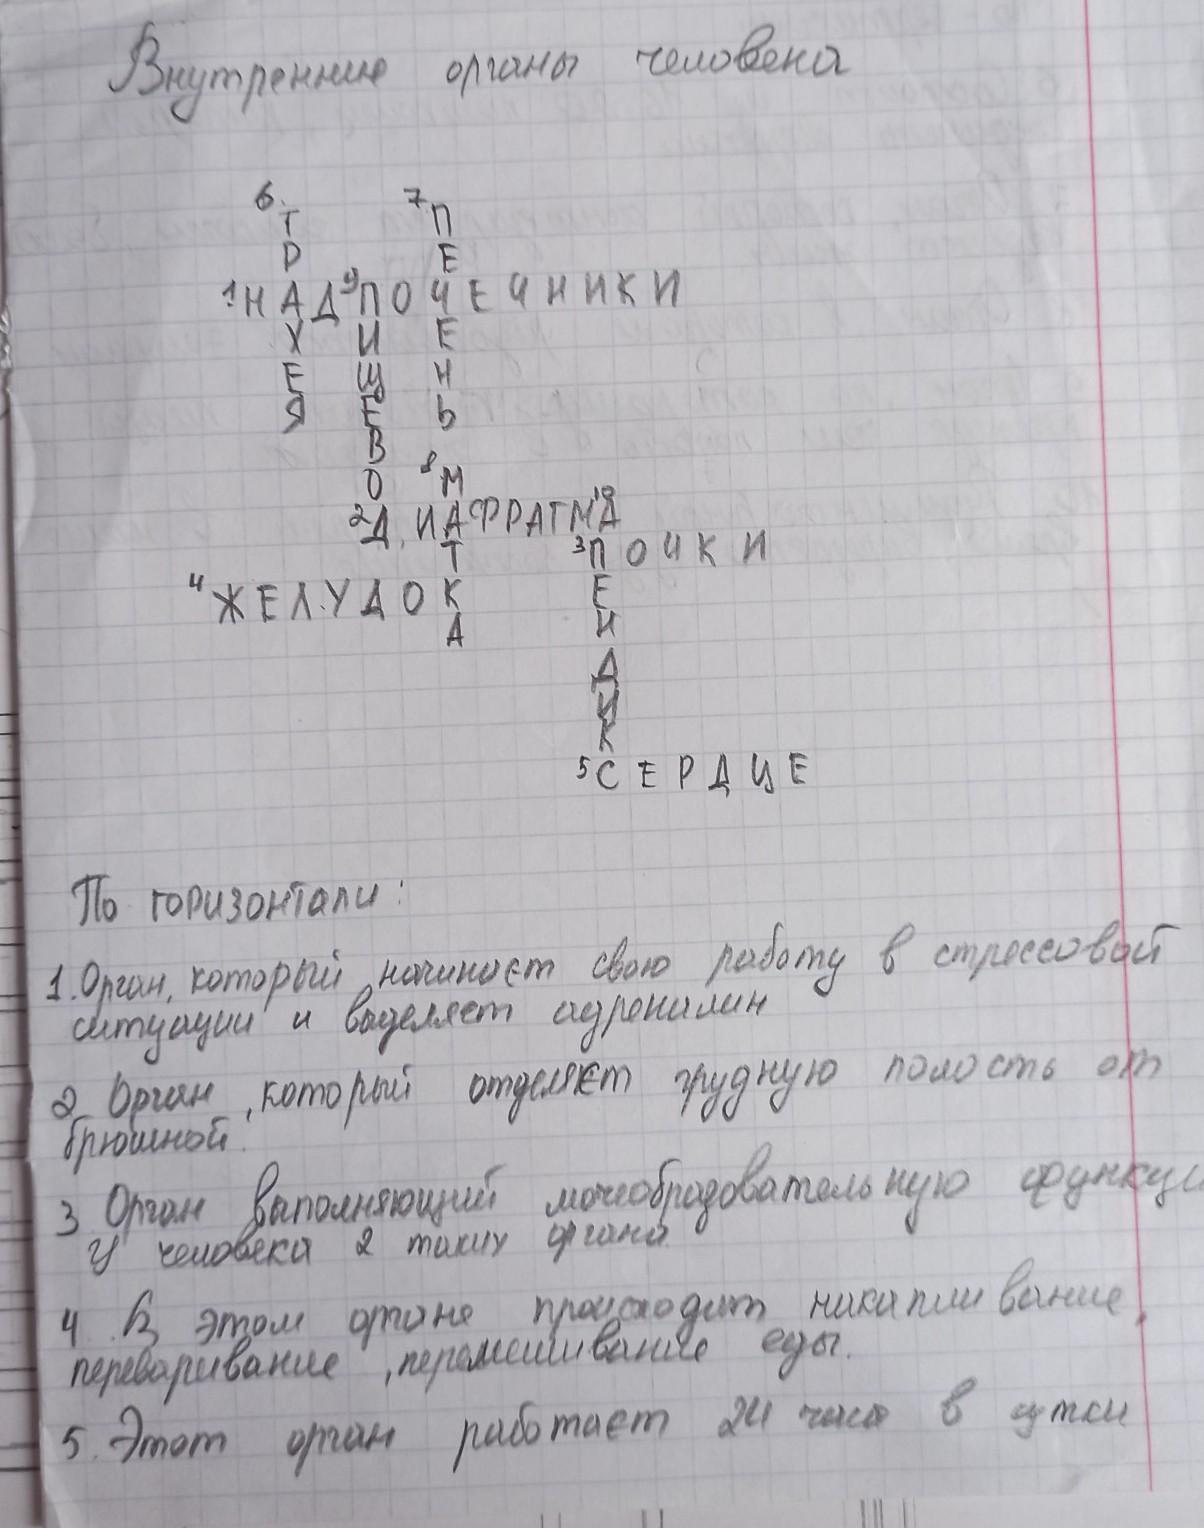 Внутренние органы человека
6. 7
Т П
Р Е
1 НАД 9 ПОЧЕЧНИКИ
Х И Е
Е Щ Н
Я Е Ь
В
О 8 М
2 Д, ИАФРАГМА 10
Т 3 ПОЧКИ
4 ЖЕЛУДОК Е
А Н
Д
И
К
5 СЕРДЦЕ
По горизонтали:
1. Орган, который начинает свою работу в стрессовой
ситуации и выделяет адреналин
2 Орган, который отделяет грудную полость от
брюшной.
3 Орган выполняющий мочеобразовательную функци
У человека 2 таких органа
4 В этом органе происходит накапливание,
переваривание, перемешивание еды.
5. Этот орган работает 24 часа в сутки